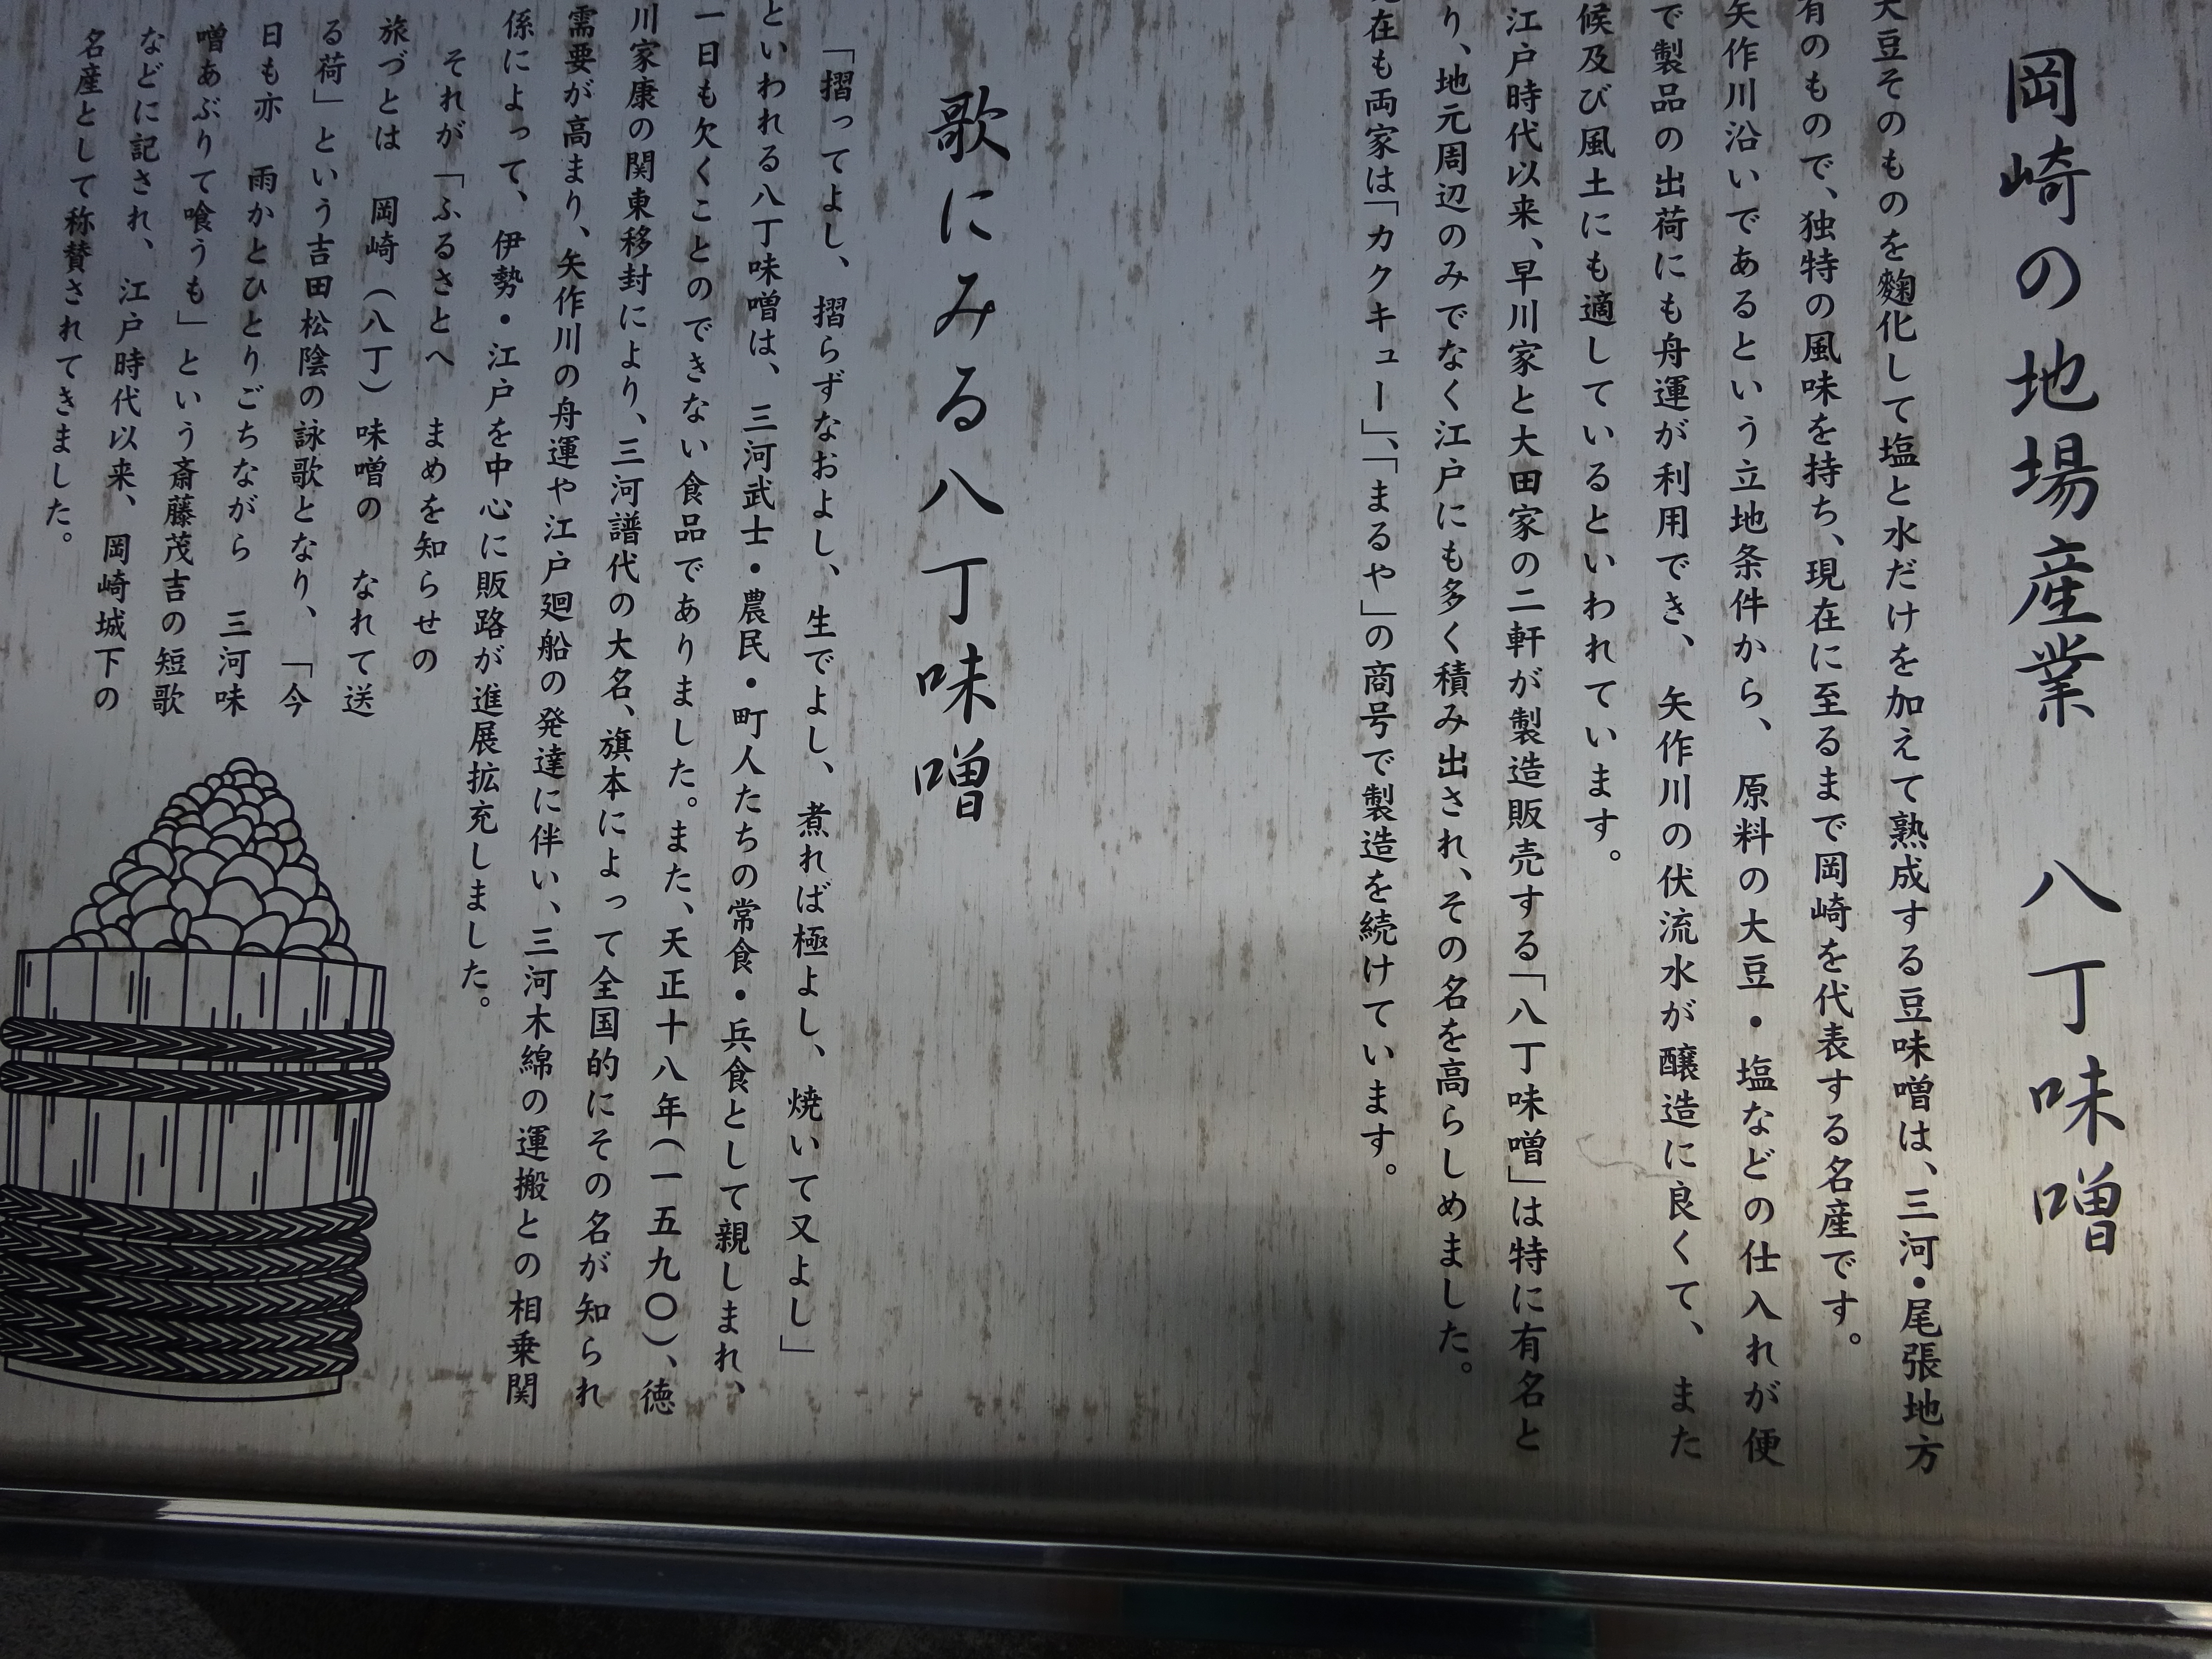 岡崎の地場産業　八丁味噌
大豆そのものを麴化して塩と水だけを加えて熟成する豆味噌は、三河・尾張地方
有のもので、独特の風味を持ち、現在に至るまで岡崎を代表する名産です。
矢作川沿いであるという立地条件から、原料の大豆・塩などの仕入れが便
で製品の出荷にも舟運が利用でき、矢作川の伏流水が醸造に良くて、また
候及び風土にも適しているといわれています。
江戸時代以来、早川家と大田家の二軒が製造販売する「八丁味噌」は特に有名と
り、地元周辺のみでなく江戸にも多く積み出され、その名を高らしめました。
在も両家は「カクキュー」、「まるや」の商号で製造を続けています。
歌にみる八丁味噌
「摺ってよし、摺らずなおよし、生でよし、煮れば極よし、焼いて又よし」
といわれる八丁味噌は、三河武士・農民・町人たちの常食・兵食として親しまれ、
一日も欠くことのできない食品でありました。また、天正十八年（一五九〇）、徳
川家康の関東移封により、三河譜代の大名、旗本によって全国的にその名が知られ
需要が高まり、矢作川の舟運や江戸廻船の発達に伴い、三河木綿の運搬との相乗関
係によって、伊勢・江戸を中心に販路が進展拡充しました。
それが「ふるさとへ　まめを知らせの
旅づとは　岡崎（八丁）味噌の　なれて送
る荷」という吉田松陰の詠歌となり、「今
日も亦　雨かとひとりごちながら　三河味
噌あぶりて喰うも」という斎藤茂吉の短歌
などに記され、江戸時代以来、岡崎城下の
名産として称賛されてきました。